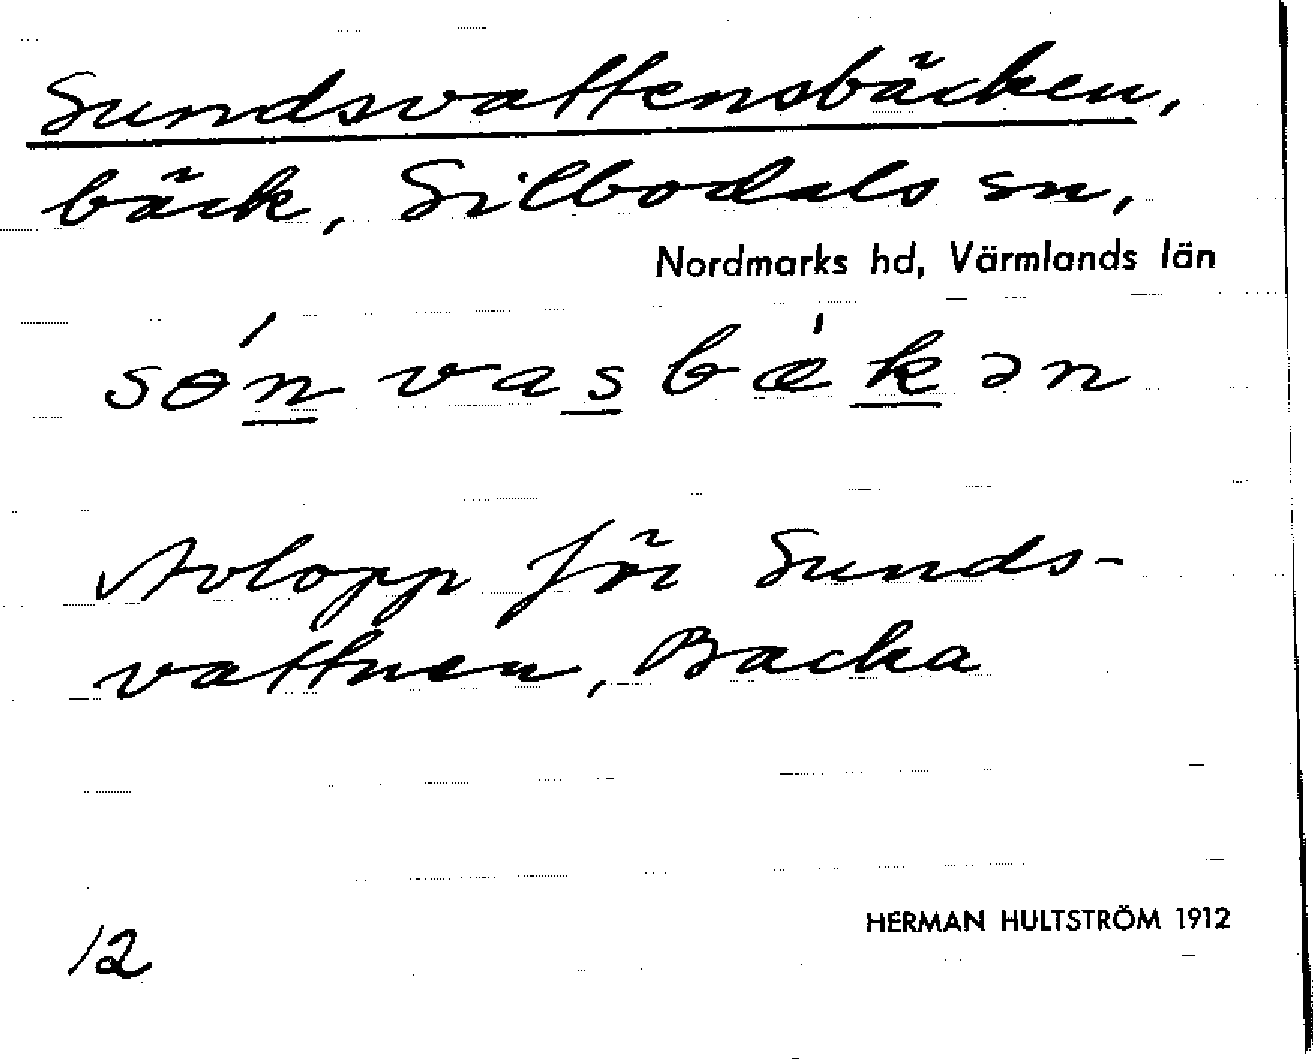 Sundsvattensbäcken,
bäck, Silbodals sn,
Nordmarks hd, Värmlands län
søńvasbæ̀kən
Avlopp för Sunds-
vattnen, Backa
HERMAN HULTSTRÖM 1912
12